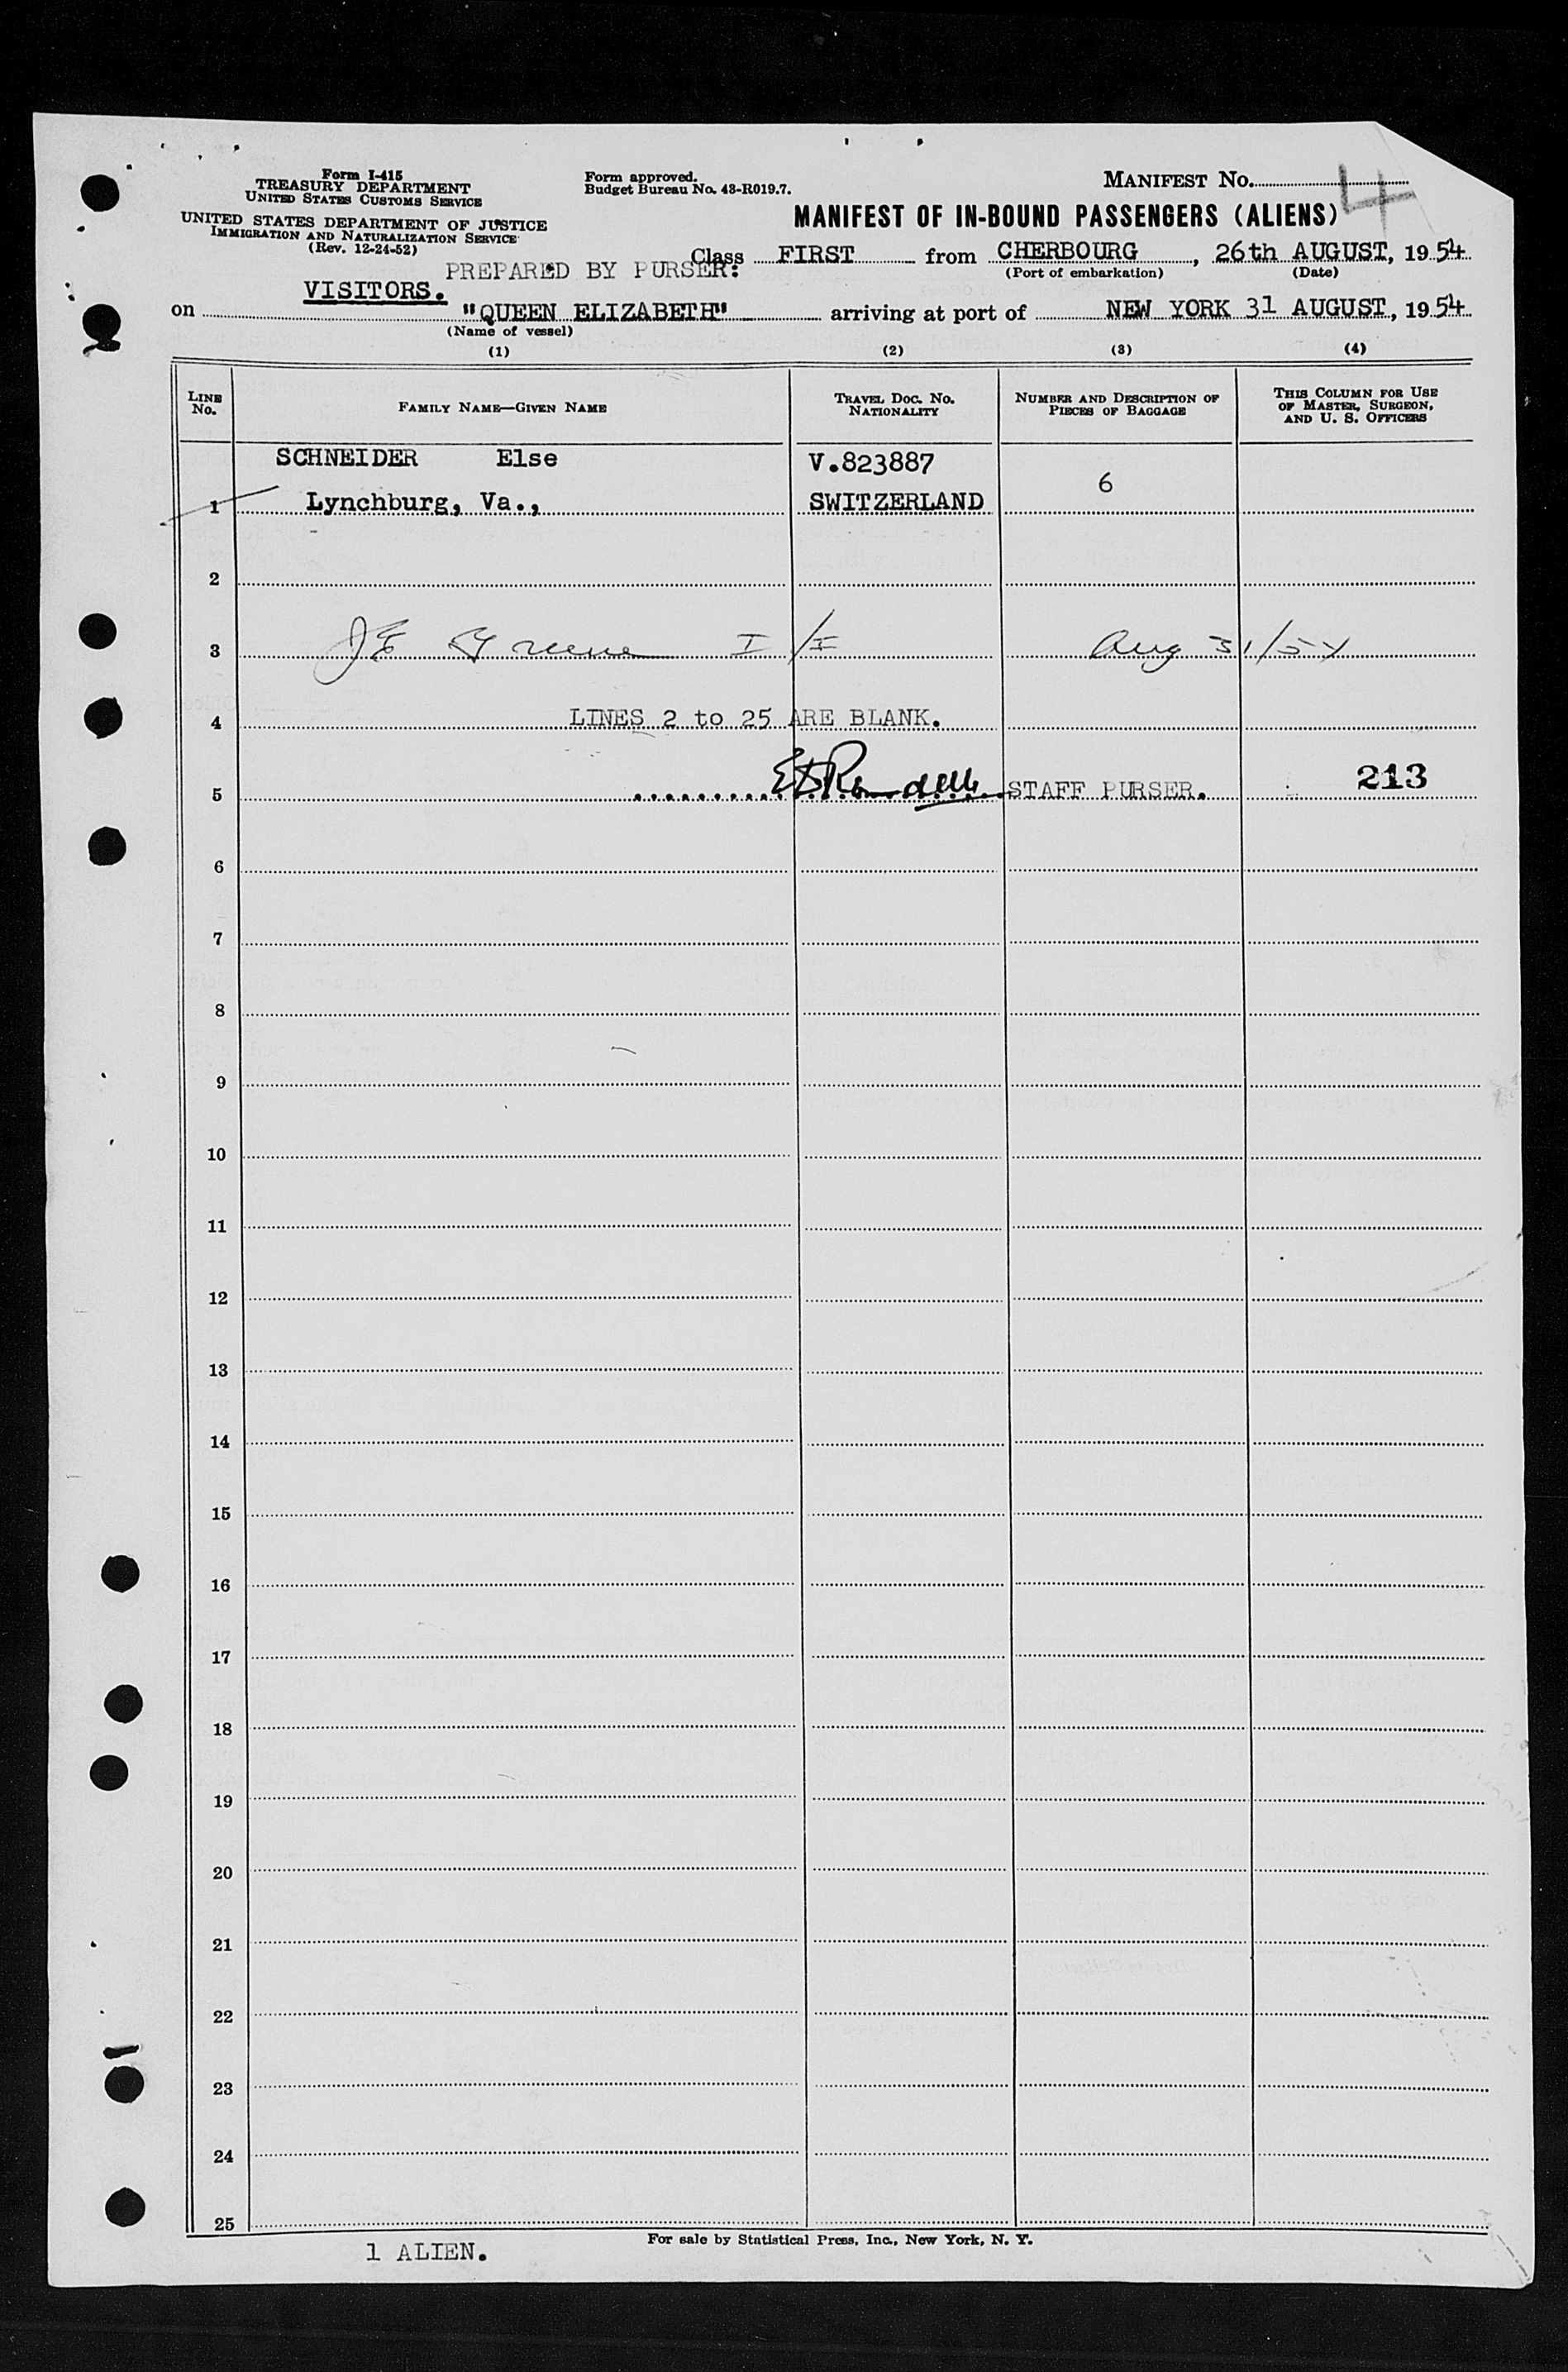 Form I-415
TREASURY DEPARTMENT
UNITED STATES CUSTOMS SERVICE
UNITED STATES DEPARTMENT OF JUSTICE
IMMIGRATION AND NATURALIZATION SERVICE
(Rev. 12-24-52)
Form approved.
Budget Bureau No. 43-R019.7.
MANIFEST No. 4
MANIFEST OF IN-BOUND PASSENGERS (ALIENS)
PREPARED BY PURSER:
Class FIRST from CHERBOURG, 26th AUGUST, 1954
(Port of embarkation) (Date)
VISITORS.
on "QUEEN ELIZABETH" arriving at port of NEW YORK 31 AUGUST, 1954
(Name of vessel)
(1) (2) (3) (4)
LINE No. FAMILY NAME—GIVEN NAME TRAVEL DOC. NO. NATIONALITY NUMBER AND DESCRIPTION OF PIECES OF BAGGAGE THIS COLUMN FOR USE OF MASTER, SURGEON, AND U. S. OFFICERS
SCHNEIDER Else V.823887
1 Lynchburg, Va., SWITZERLAND 6
2
3 JE Greene I/I Aug 31/54
4 LINES 2 to 25 ARE BLANK.
5 STAFF PURSER. 213
6
7
8
9
10
11
12
13
14
15
16
17
18
19
20
21
22
23
24
25
1 ALIEN.
For sale by Statistical Press, Inc., New York, N. Y.